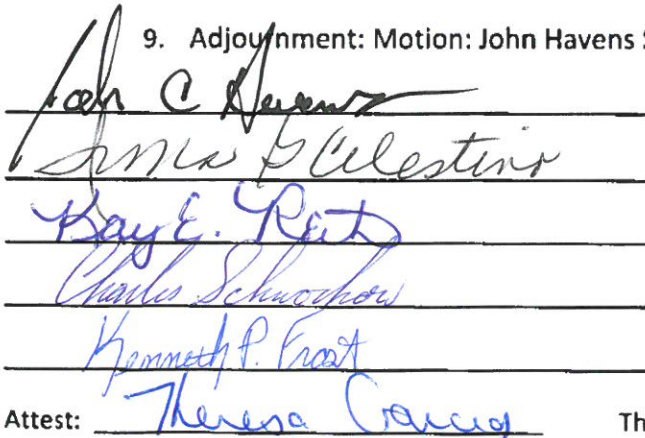 9. Adjournment: Motion: John Havens
John C Havens
Irma G Celestino
Kay E. Reitz
Charles Schwochow
Kenneth P. Frost
Attest: Theresa Garcia Th